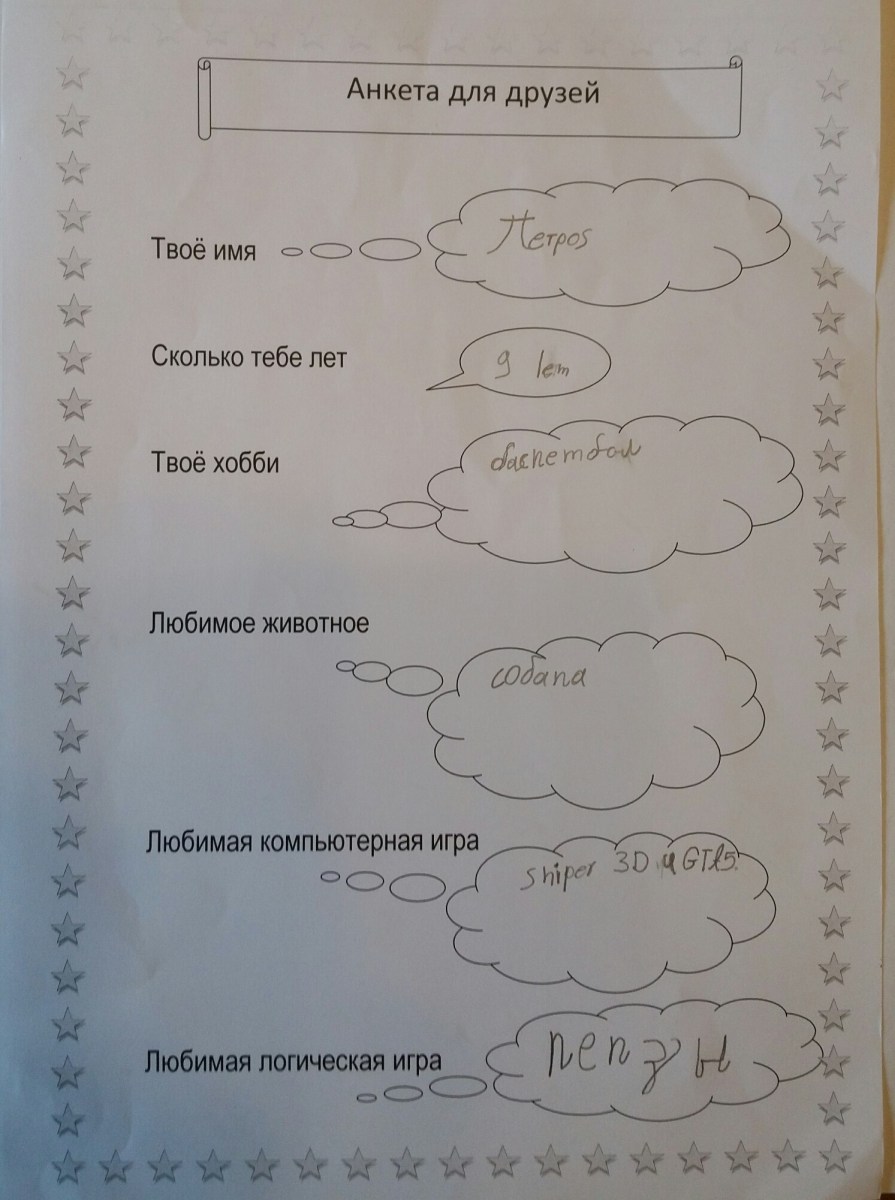 Анкета для друзей
Твоё имя
Петроs
Сколько тебе лет
9 lет
Твоё хобби
баскетбол
Любимое животное
собака
Любимая компьютерная игра
Sniper 3D и GTA5
Любимая логическая игра